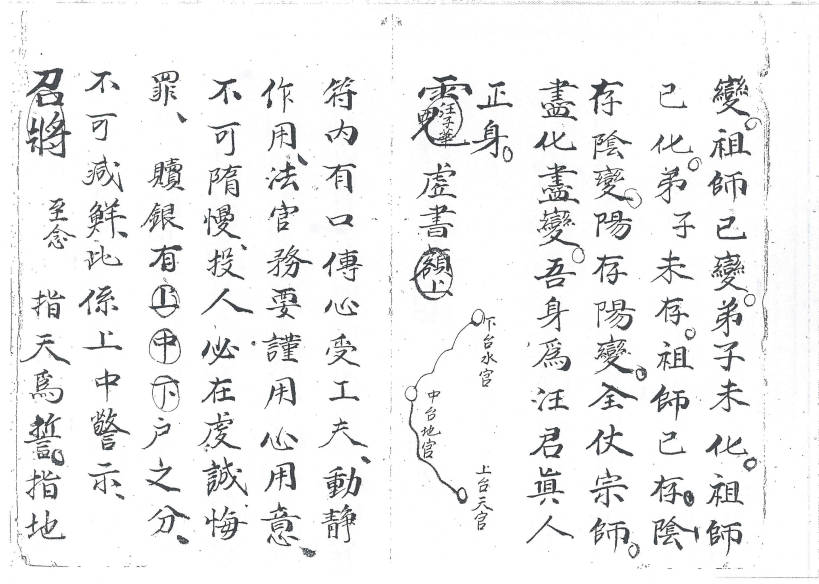 變。祖師已變。弟子未化。祖師
已化。弟子未存。祖師已存。陰
存陰變。陽存陽變。全仗宗師。
盡化盡變。吾身為汪君真人
正身。
汪子華 虛書額上
下台水官
中台地官
上台天官
符内有口傳心受工夫、動静
作用、法官務要謹用心用意、
不可隋慢、投人必在虔誠悔
罪、贖銀有上中下户之分、
不可減鮮、比係上中警示、
召將 至念 指天爲誓。指地